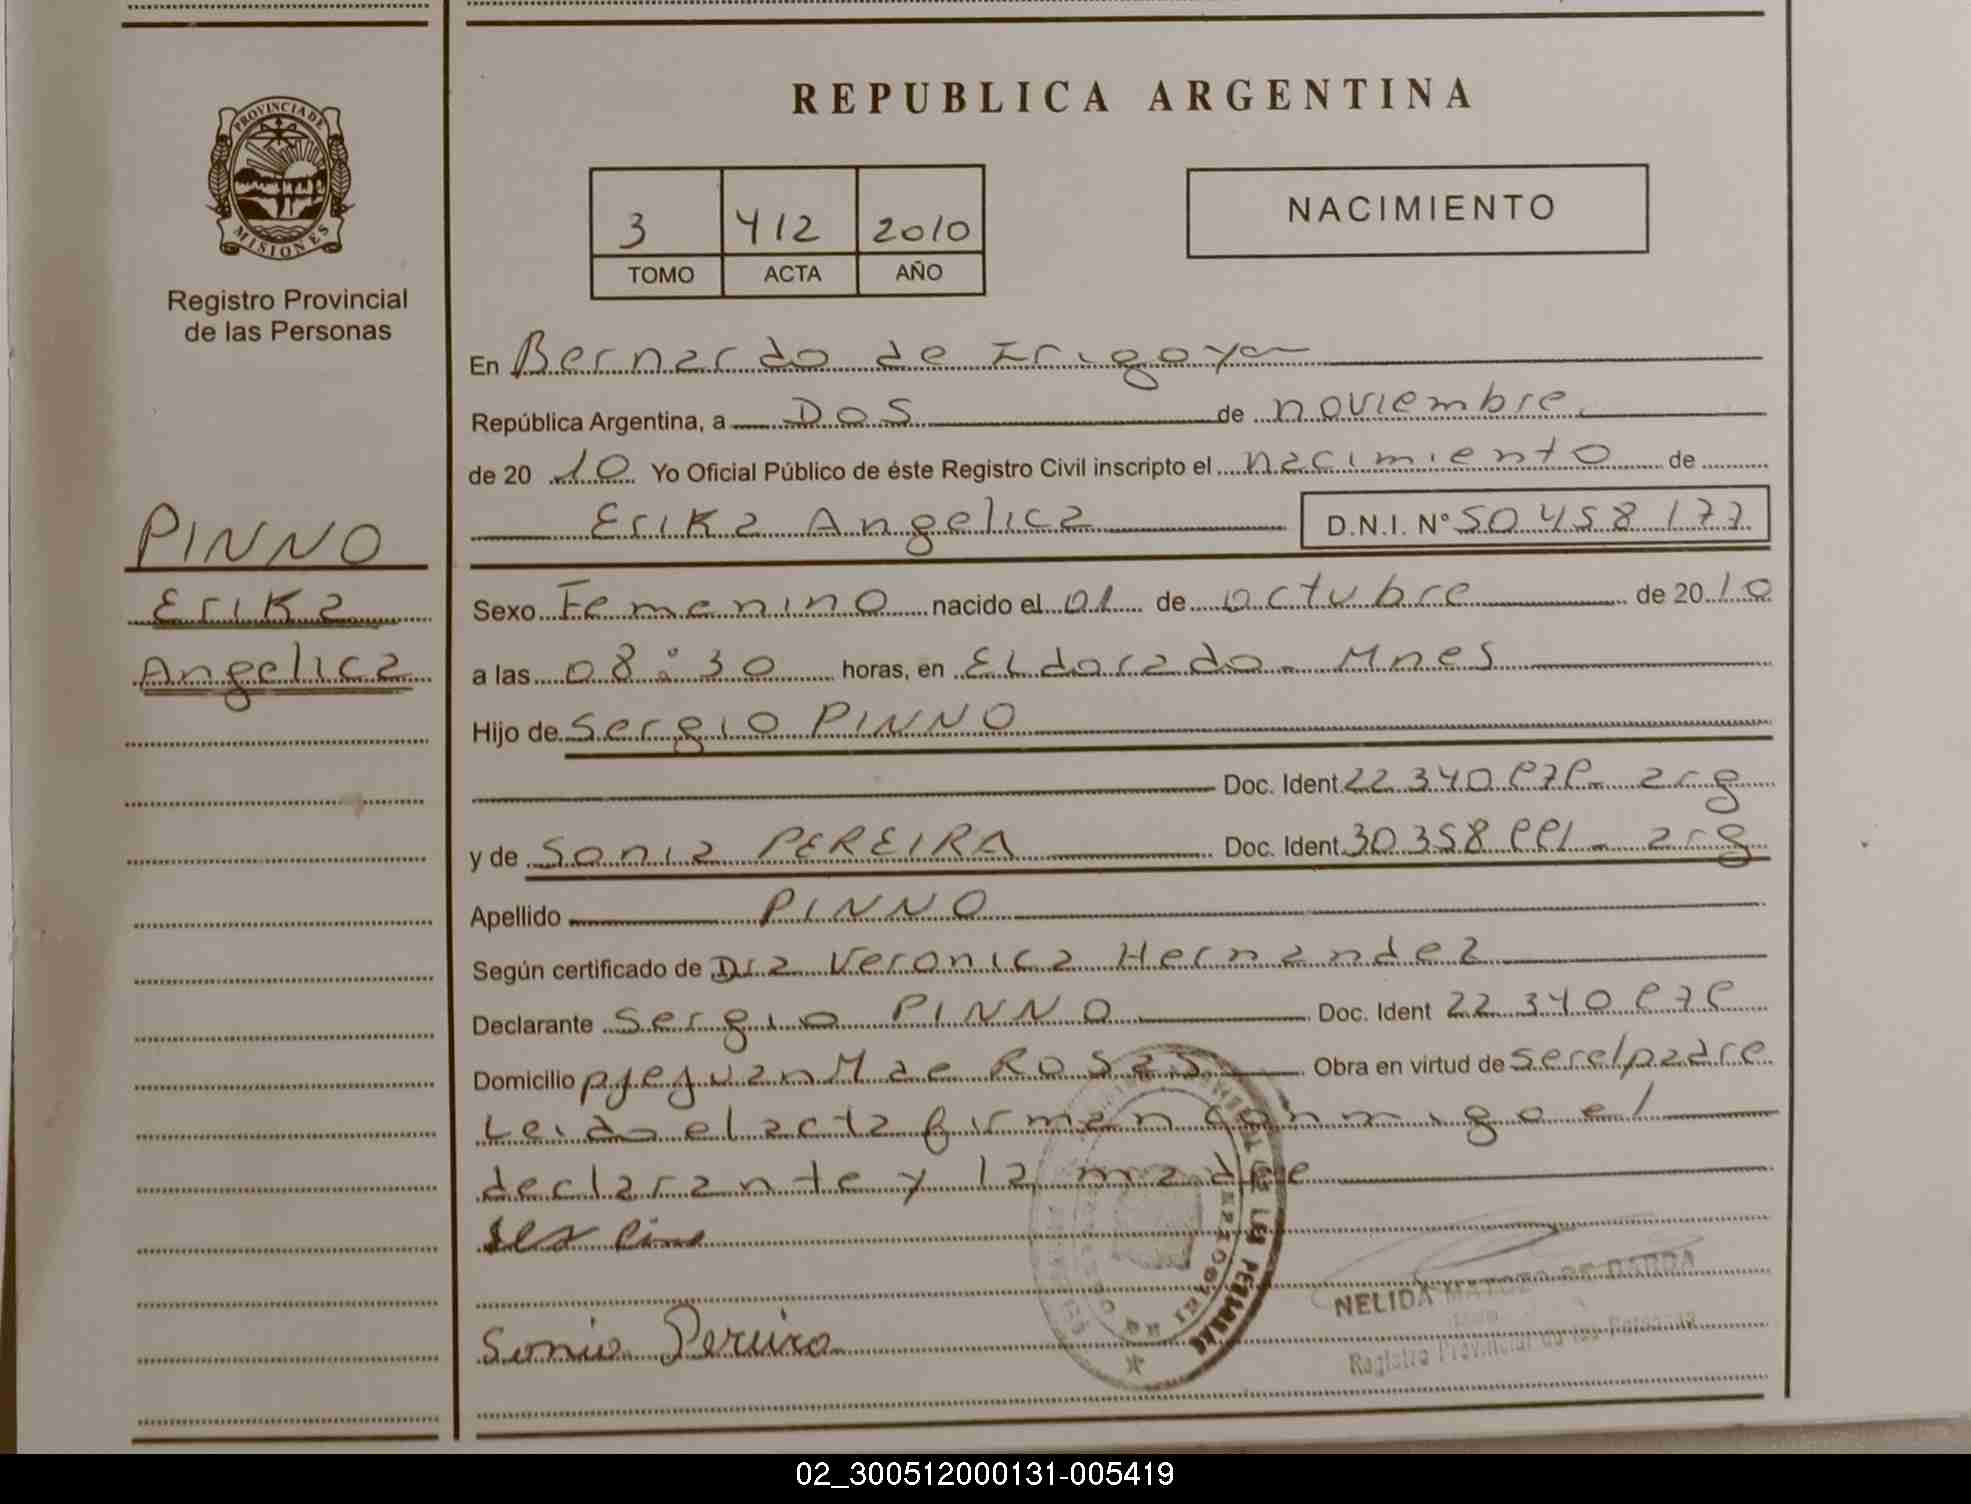 REPUBLICA ARGENTINA
PROVINCIA DE
MISIONES
Registro Provincial
de las Personas
3 412 2010
TOMO ACTA AÑO
NACIMIENTO
En Bernardo de Irigoyen
República Argentina, a Dos de noviembre
de 20 10 Yo Oficial Público de éste Registro Civil inscripto el nacimiento de
Erika Angelica D.N.I. N° 50 458 177
PINNO
Erika
Angelica
Sexo Femenino nacido el 01 de octubre de 20 10
a las 08:30 horas, en Eldorado - Mnes
Hijo de Sergio PINNO
Doc. Ident 22 340 979 - arg
y de Sonia PEREIRA Doc. Ident 30 358 991 - arg
Apellido PINNO
Según certificado de Dra Veronica Hernandez
Declarante Sergio PINNO Doc. Ident 22 340 979
Domicilio pje Juan M de Rosas Obra en virtud de ser el padre
Leido el acta firman conmigo el
declarante y la madre
Sonia Pereira
NELIDA
Registro Provincial de las Personas
02_300512000131-005419